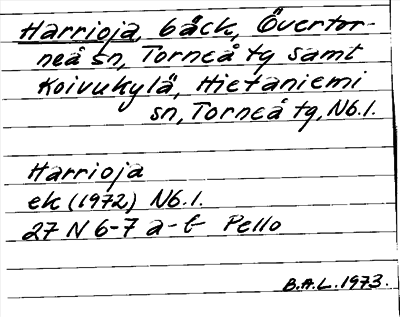 Harrioja, bäck, Övertor-
neå sn, Torneå tg samt
Koivukylä, Hietaniemi
sn, Torneå tg, Nb.l.
Harrioja
ek (1972) Nb.l.
27 N 6-7 a-b Pello
B.A.L. 1973.